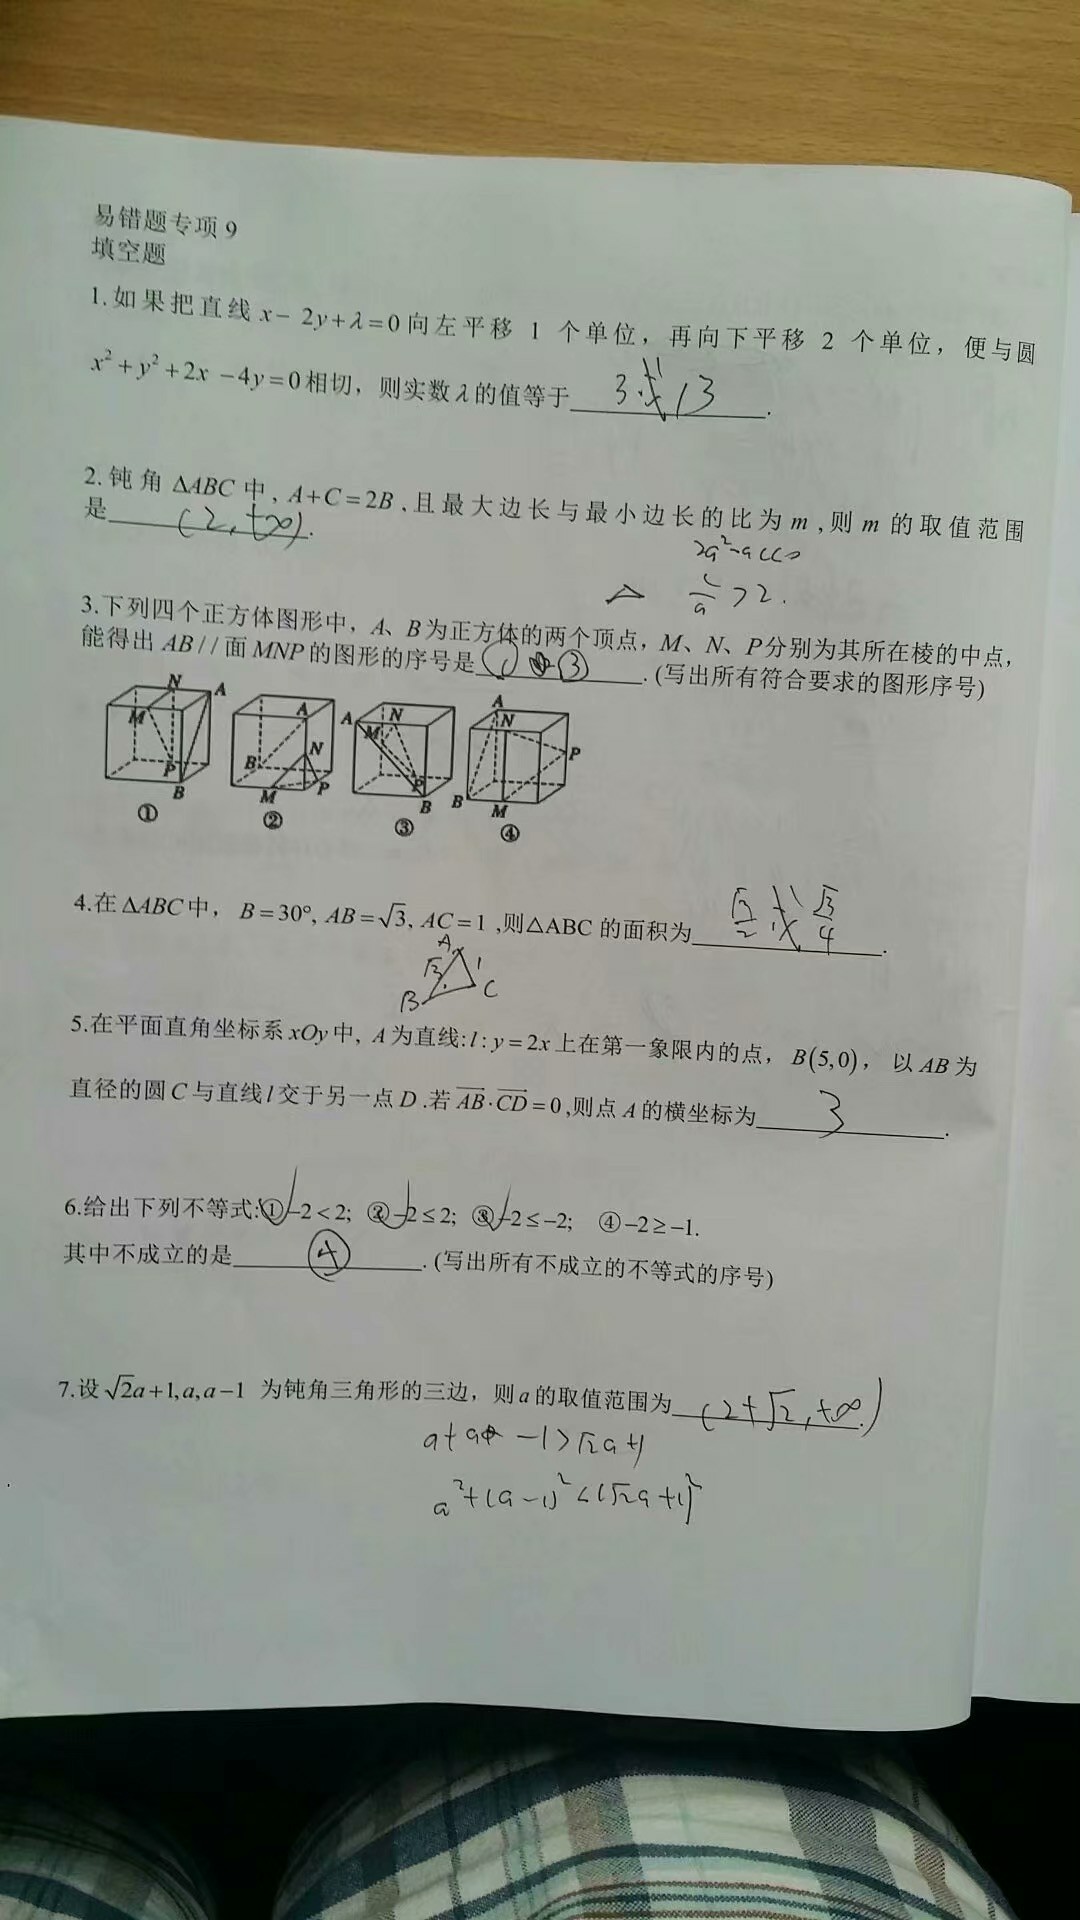 易错题专项9
填空题
1.如果把直线 x－2y+λ=0向左平移 1 个单位，再向下平移 2 个单位，便与圆
x²+y²+2x－4y=0相切，则实数λ的值等于 3或13 .
2.钝角 ΔABC 中, A+C=2B ,且最大边长与最小边长的比为 m ,则 m 的取值范围
是 (2,+∞) .
c/a >2.
3.下列四个正方体图形中，A、B为正方体的两个顶点，M、N、P分别为其所在棱的中点，
能得出 AB//面 MNP 的图形的序号是 ① ③ . (写出所有符合要求的图形序号)
N A M P B
A B N M P
A N M P B
A N P B M
① ② ③ ④
4.在ΔABC中， B=30°, AB=√3, AC=1 ,则△ABC 的面积为 √3/2 或 √3/4 .
A √3 1 B C
5.在平面直角坐标系xOy中, A为直线:l:y=2x上在第一象限内的点，B(5,0)， 以AB为
直径的圆C与直线l交于另一点D.若AB·CD=0,则点A的横坐标为 3 .
6.给出下列不等式:①－2<2; ②－2≤2; ③－2≤－2; ④－2≥－1.
其中不成立的是 ④ . (写出所有不成立的不等式的序号)
7.设√2a+1,a,a－1 为钝角三角形的三边，则a的取值范围为 (2+√2,+∞) .
a+a －1>√2a+1
a²+(a－1)²<(√2a+1)²